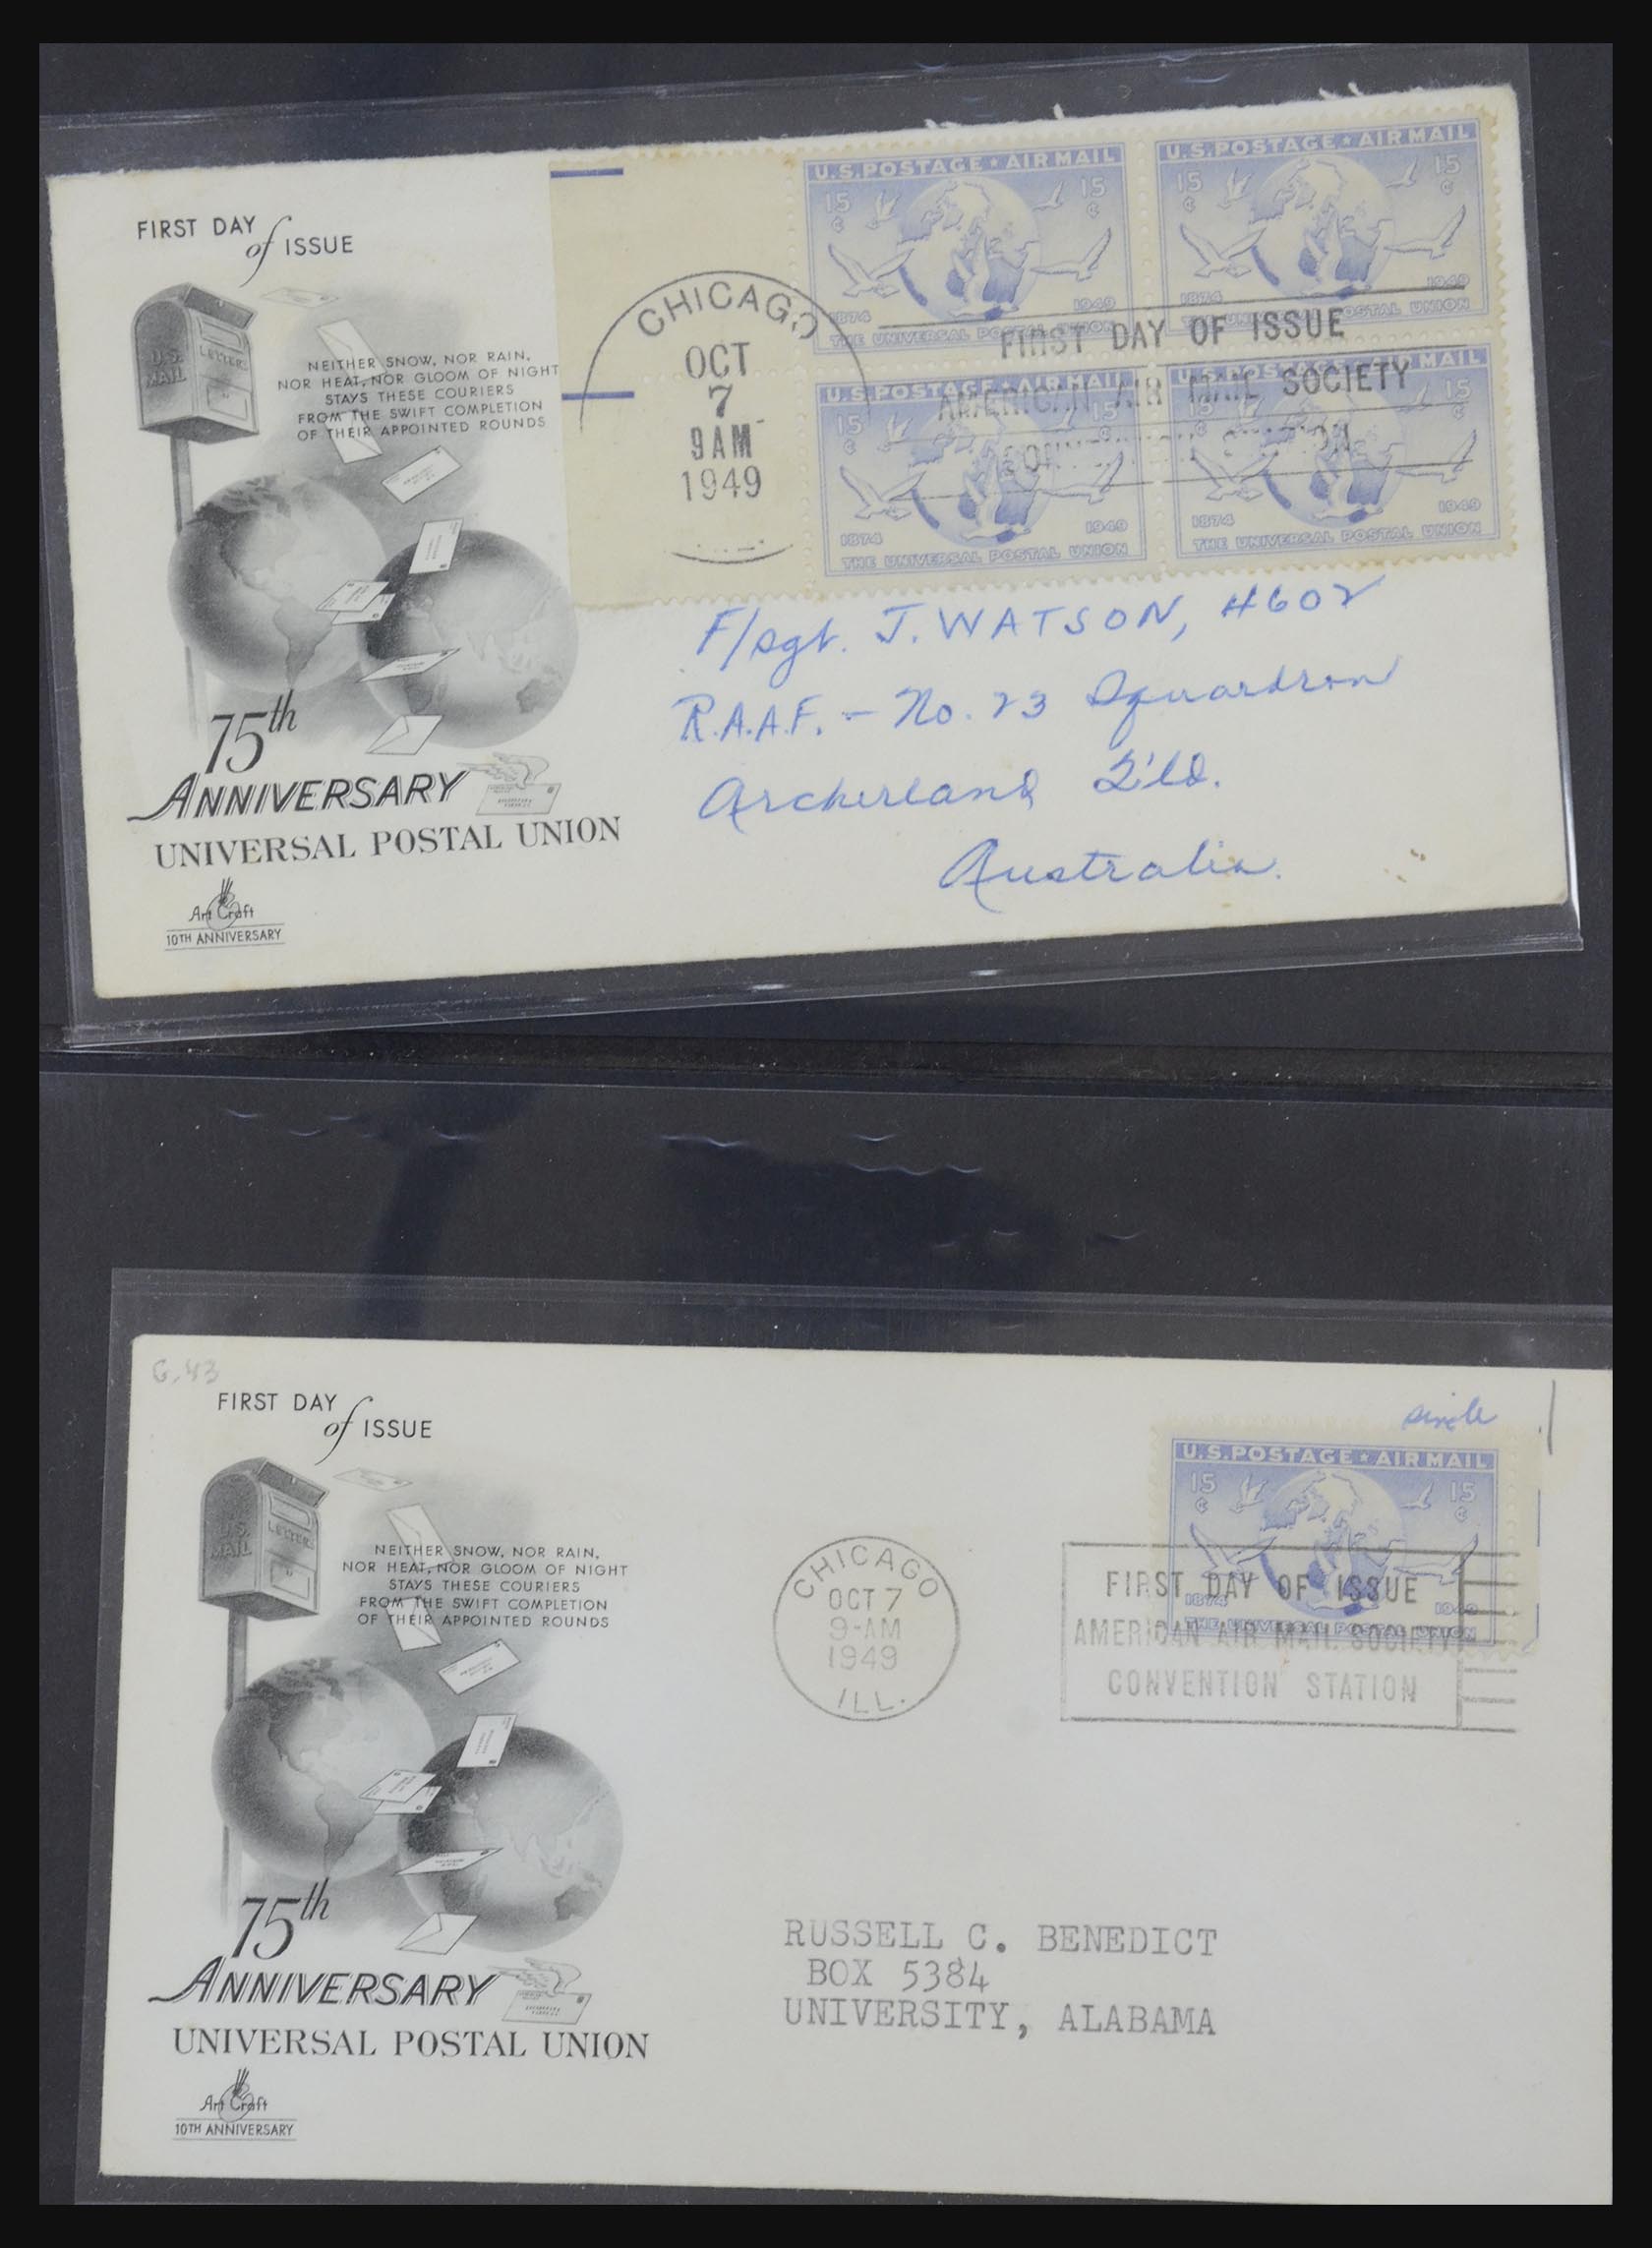 FIRST DAY
of ISSUE
U.S. MAIL
LETTERS
NEITHER SNOW, NOR RAIN,
NOR HEAT, NOR GLOOM OF NIGHT
STAYS THESE COURIERS
FROM THE SWIFT COMPLETION
OF THEIR APPOINTED ROUNDS
75th
ANNIVERSARY
UNIVERSAL POSTAL UNION
Art Craft
10TH ANNIVERSARY
CHICAGO
OCT
7
9 AM
1949
U.S. POSTAGE ★ AIR MAIL
15¢ 15¢
1874 1949
THE UNIVERSAL POSTAL UNION
U.S. POSTAGE ★ AIR MAIL
15¢ 15¢
1874 1949
THE UNIVERSAL POSTAL UNION
U.S. POSTAGE ★ AIR MAIL
15¢ 15¢
1874 1949
THE UNIVERSAL POSTAL UNION
U.S. POSTAGE ★ AIR MAIL
15¢ 15¢
1874 1949
THE UNIVERSAL POSTAL UNION
FIRST DAY OF ISSUE
AMERICAN AIR MAIL SOCIETY
F/sgt. J. WATSON, #602
R.A.A.F. - No. 23 Squardron
Archerland Q'ld.
Australia.
6.43
FIRST DAY
of ISSUE
U.S. MAIL
LETTERS
NEITHER SNOW, NOR RAIN,
NOR HEAT, NOR GLOOM OF NIGHT
STAYS THESE COURIERS
FROM THE SWIFT COMPLETION
OF THEIR APPOINTED ROUNDS
75th
ANNIVERSARY
UNIVERSAL POSTAL UNION
Art Craft
10TH ANNIVERSARY
single
U.S. POSTAGE ★ AIR MAIL
15¢ 15¢
1874 1949
THE UNIVERSAL POSTAL UNION
CHICAGO
OCT 7
9-AM
1949
ILL.
FIRST DAY OF ISSUE
AMERICAN AIR MAIL SOCIETY
CONVENTION STATION
RUSSELL C. BENEDICT
BOX 5384
UNIVERSITY, ALABAMA